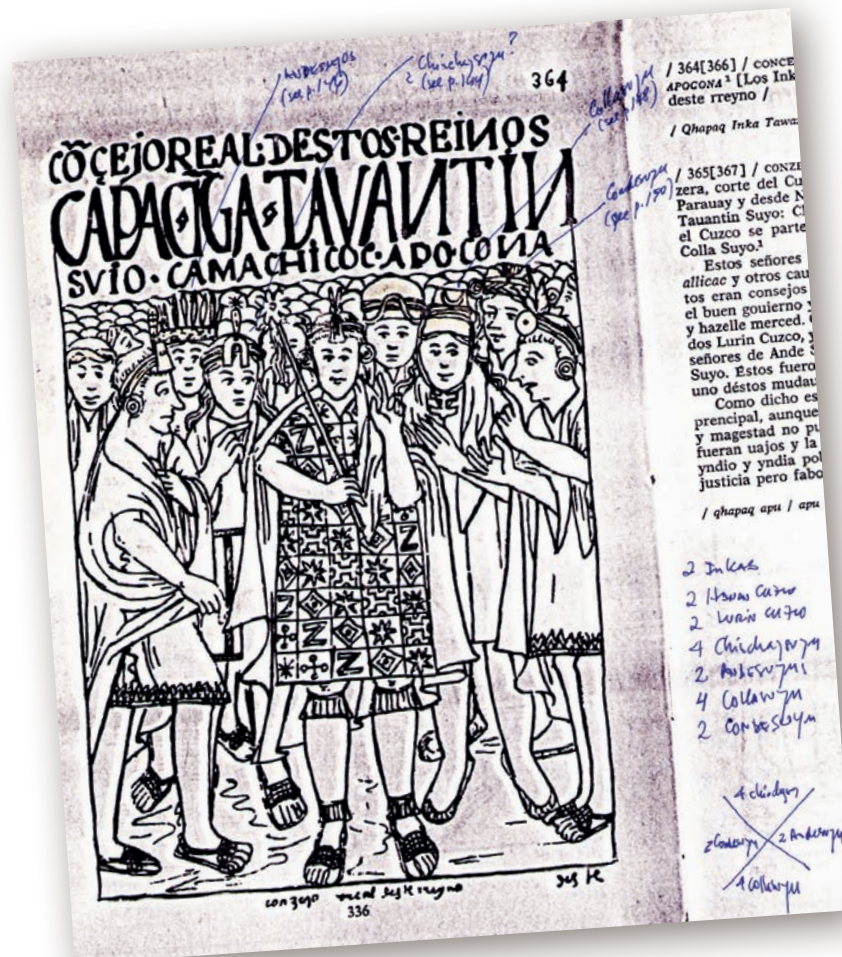 ANDESUYOS
(see p. 146)
Chinchaysuyu?
(see p. 144)
Collasuyu
(see p. 148)
Condesuyu
(see p. 150)
364
CÕÇEJOREAL·DESTOS·REINOS
CAPAC·IŨGA·TAVANTIN
SVIO·CAMACHICOC·APO·CONA
conzejo real deste reyno
336
/ 364[366] / CONCE
APOCONA¹ [Los Ink
deste rreyno /
/ Qhapaq Inka Tawa
/ 365[367] / CONZE
zera, corte del Cu
Parauay y desde N
Tauantin Suyo: C
el Cuzco se parte
Colla Suyo.¹
Estos señores
allicac y otros cau
tos eran consejos
el buen gouierno y
y hazelle merced.
dos Lurin Cuzco, y
señores de Ande S
Suyo. Éstos fuero
uno déstos mudau
Como dicho es
prencipal, aunque
y magestad no pu
fueran uajos y la
yndio y yndia pol
justicia pero fabo
/ qhapaq apu / apu
2 Inkas
2 Hanan Cuzco
2 Lurin Cuzco
4 Chinchaysuyu
2 Andesuyus
4 Collasuyu
2 Condesuyu
4 chinchaysuyu
2 Condesuyu 2 Andesuyu
4 collasuyu